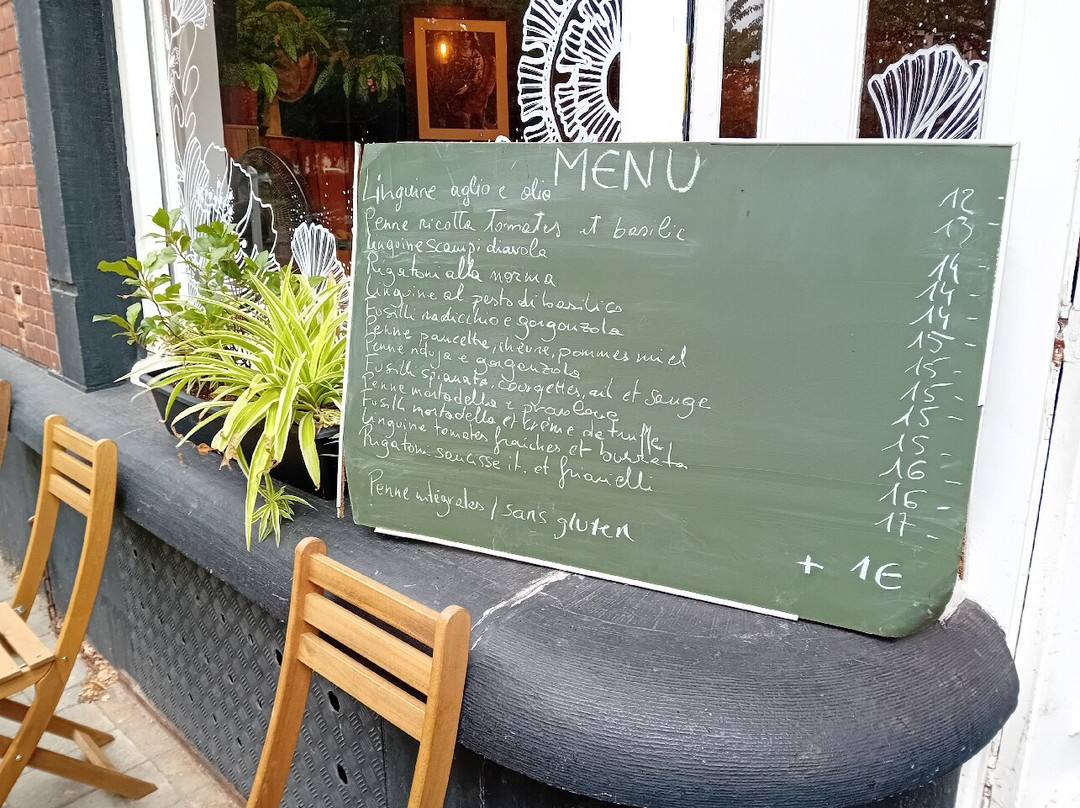 MENU
Linguine aglio e olio 12-
Penne ricotta tomates et basilic 13-
Linguine scampi diavola 14-
Rigatoni alla norma 14-
Linguine al pesto di basilico 14-
Fusilli radicchio e gorgonzola 15-
Penne pancetta, chèvre, pommes miel 15-
Penne nduja e gorgonzola 15-
Fusilli spianata, courgettes, ail et sauge 15-
Penne mortadella e provolone 15-
Fusilli mortadella et crème de truffe 16-
Linguine tomates fraiches et burrata 16-
Rigatoni saucisse it. et friarielli 17-
Penne intégrales / sans gluten + 1€